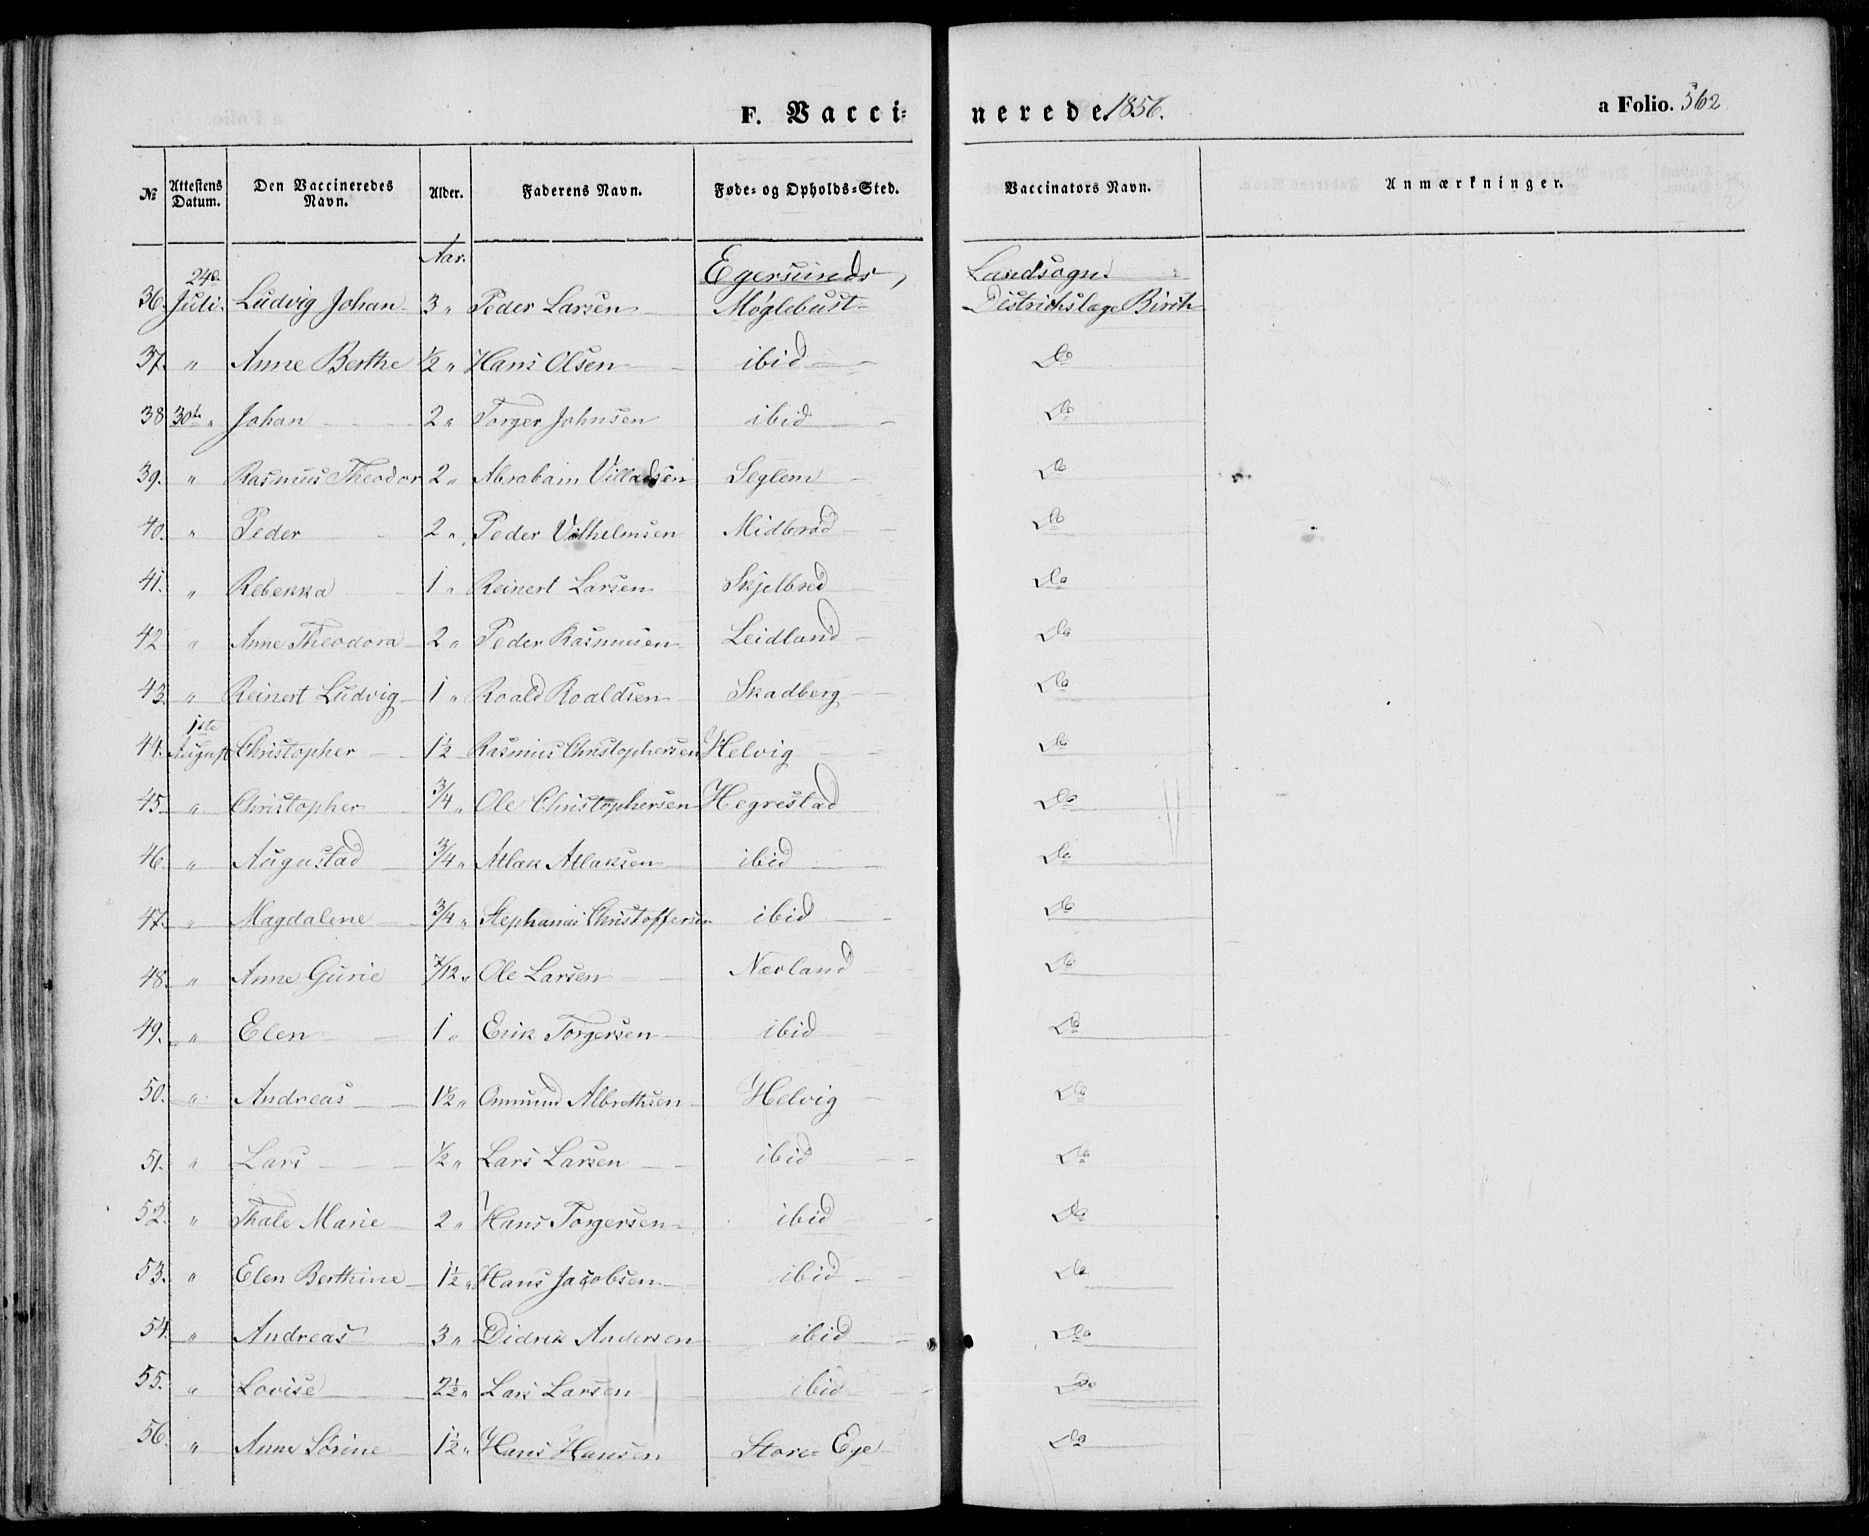 F. Vaccinerede 1856. a Folio. 562
№ Attestens Datum. Den Vaccineredes Navn. Alder. Faderens Navn. Føde- og Opholds-Sted. Vaccinators Navn. Anmærkninger.
Aar. Egersunds, Landsogn.
36. 24de Juli. Ludvig Johan 3 " Peder Larsen Møglebust Districhslæge Birch
37. " Anne Berthe 1/2 " Hans Olsen ibid Do
38 30te " Johan 2 " Torger Johnsen ibid Do
39. " Rasmus Theodor 2 " Abraham Villadsen Seglem Do
40. " Peder 2 " Peder Vilhelmsen Midbrød Do
41. " Rebekka 1 " Reinert Larsen Skjelbred Do
42 " Anne Theodora 2 " Peder Rasmusen Leidland Do
43. " Reinert Ludvig 1 " Roald Roaldsen Skadberg Do
44. 1ste August Christopher 1 1/2 Rasmus Christophersen Helvig Do
45. " Christopher 3/4 " Ole Christophersen Hegrestad Do
46. " Augustad 3/4 " Atlak Atlaksen ibid Do
47. " Magdalene 3/4 " Stephanus Christoffersen ibid Do
48. " Anne Gurie 7/12 " Ole Larsen Nævland Do
49. " Elen 1 " Erik Torgersen ibid Do
50. " Andreas 1 1/2 " Ommund Albrethsen Helvig Do
51. " Lars 1/2 " Lars Larsen ibid Do
52. " Thale Marie 2 " Hans Torgersen ibid Do
53. " Elen Berthine 1 1/2 " Hans Jacobsen ibid Do
54. " Andreas 3 " Didrik Andersen ibid Do
55. " Lovise 2 1/2 " Lars Larsen ibid Do
56. " Anne Sørine 1 1/2 " Hans Hansen Store-Ege Do